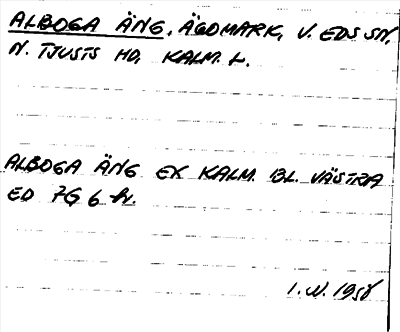 ALBOGA ÄNG, ÄGOMARK, V. EDS SN,
N. TJUSTS HD, KALM. L.
ALBOGA ÄNG EK KALM. BL. VÄSTRA
ED 7G 6 h.
I. W. 1958